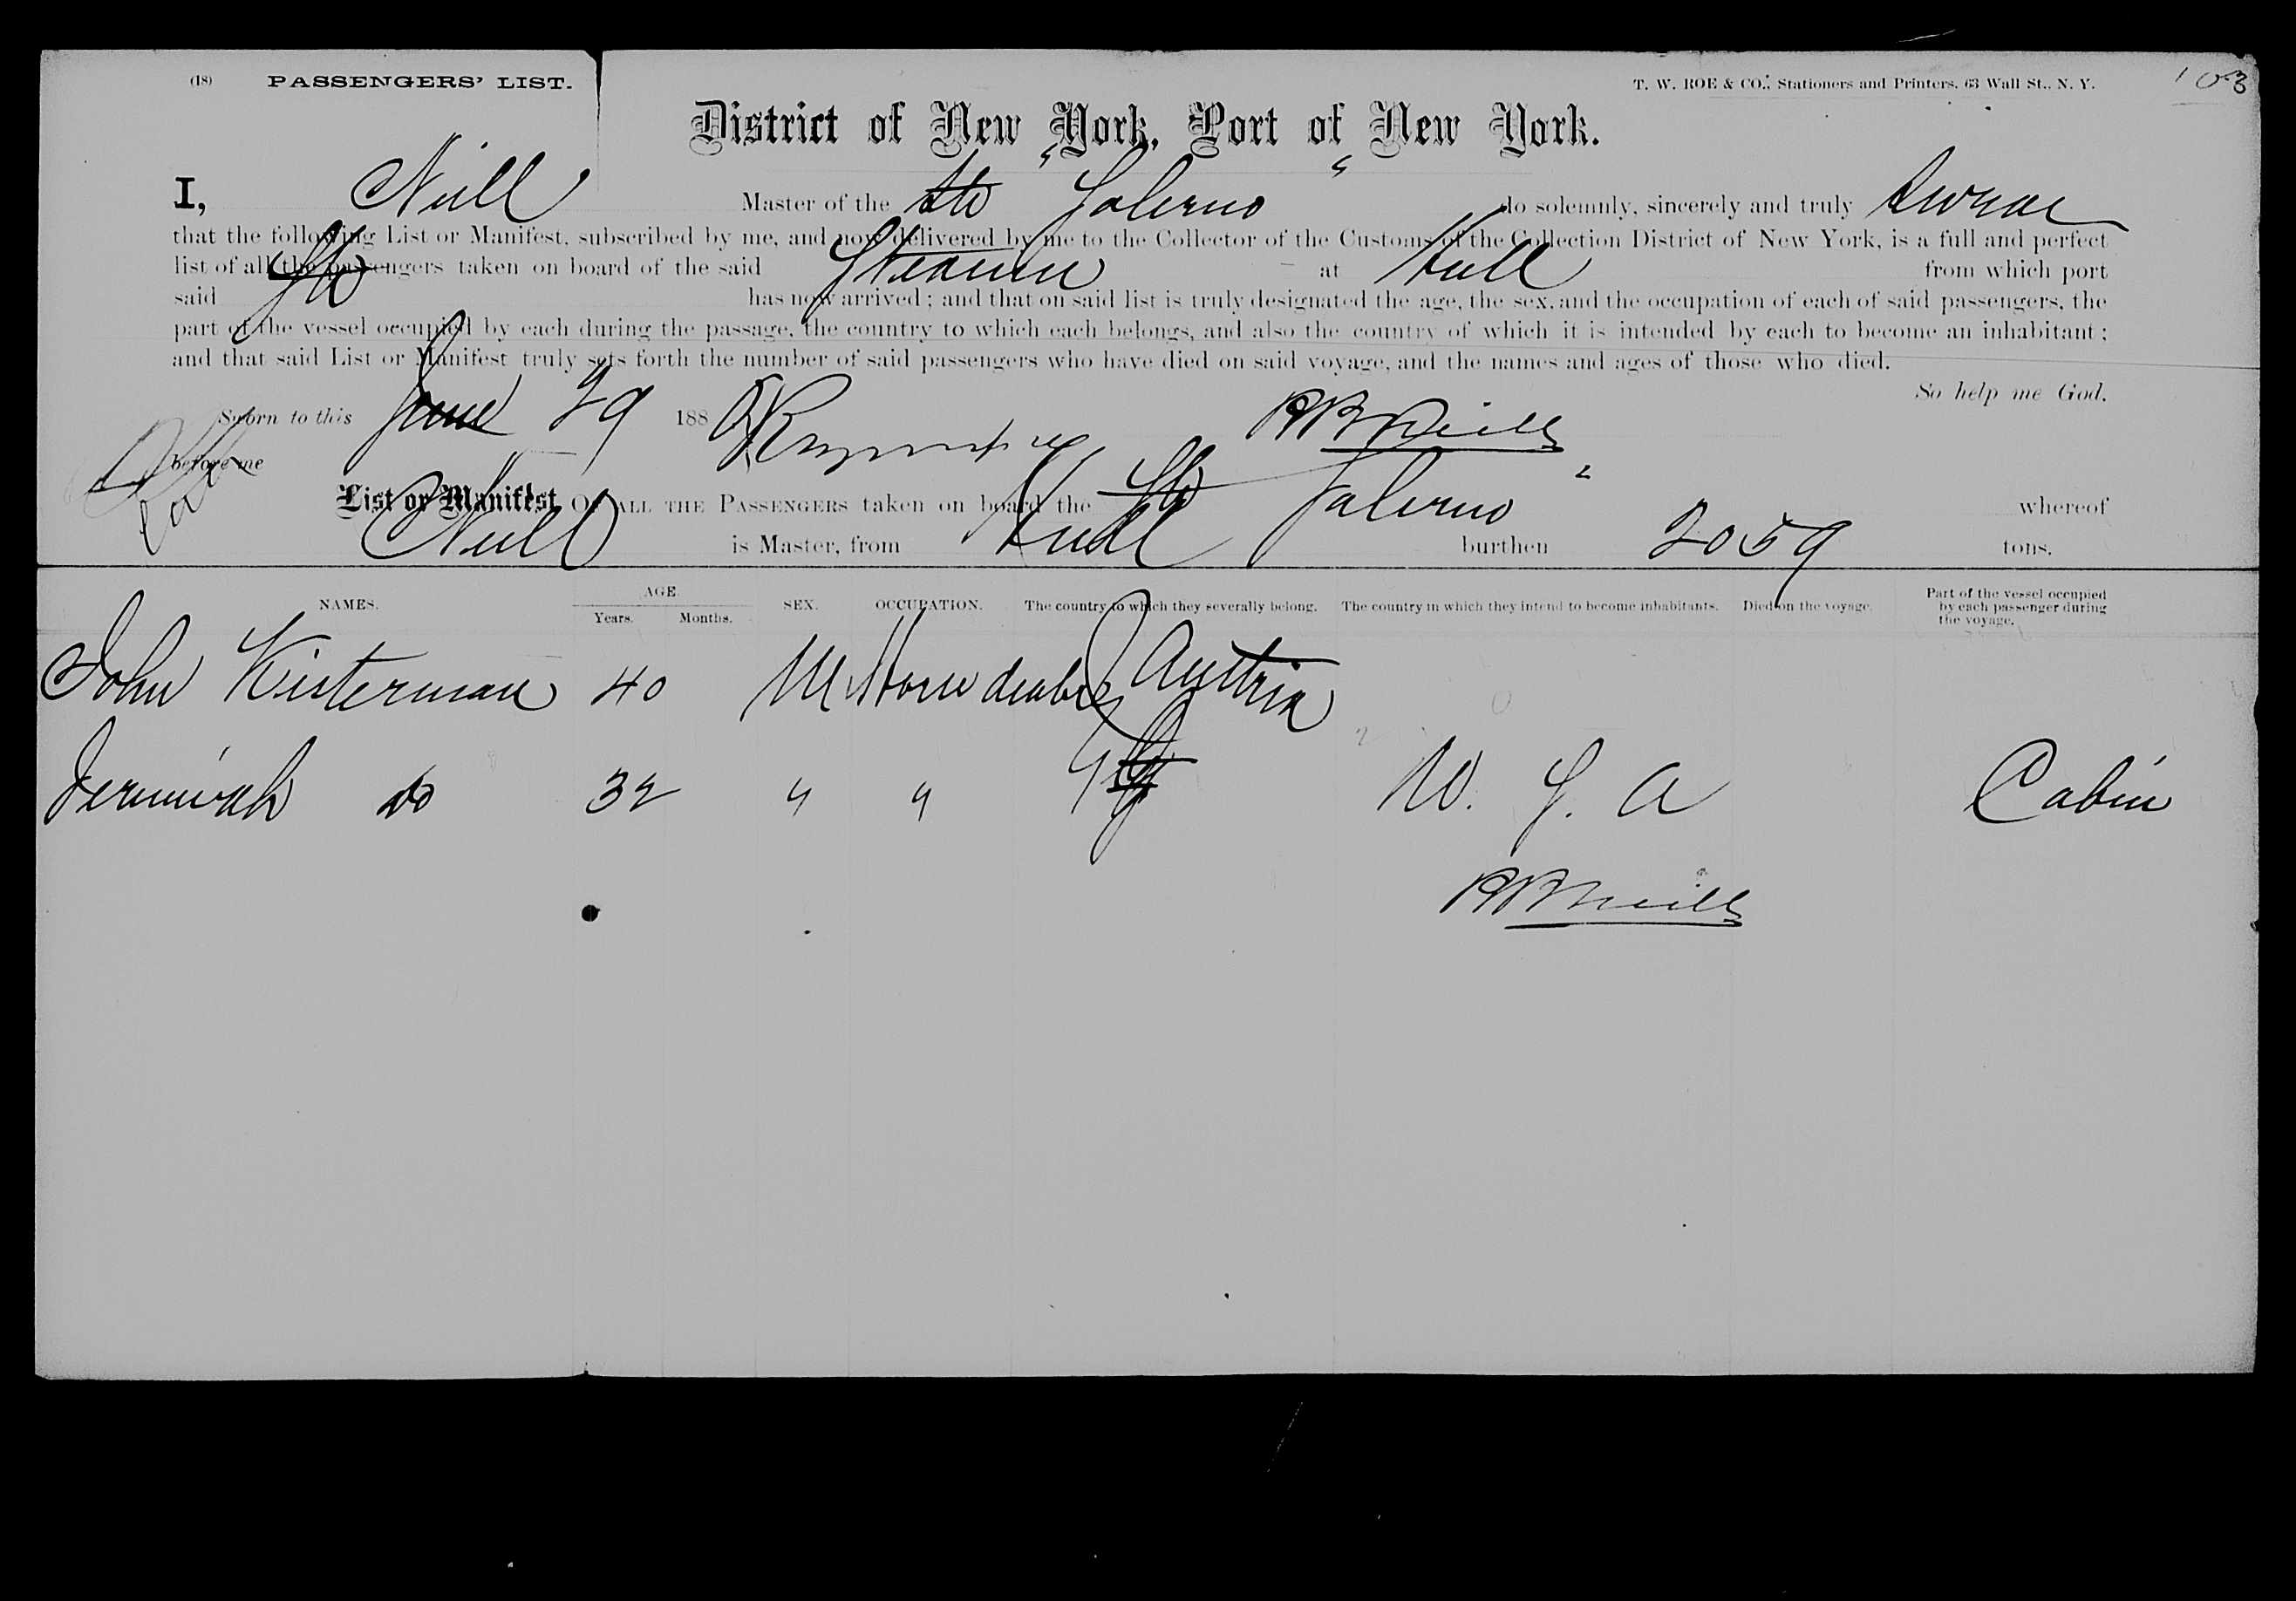 (18) PASSENGERS' LIST. T. W. ROE & CO., Stationers and Printers, 63 Wall St., N. Y. 103
District of New York, Port of New York.
I, Neill Master of the Str "Salerno" do solemnly, sincerely and truly swear
that the following List or Manifest, subscribed by me, and now delivered by me to the Collector of the Customs of the Collection District of New York, is a full and perfect
list of all the passengers taken on board of the said Steamer at Hull from which port
said Str has now arrived; and that on said list is truly designated the age, the sex, and the occupation of each of said passengers, the
part of the vessel occupied by each during the passage, the country to which each belongs, and also the country of which it is intended by each to become an inhabitant;
and that said List or Manifest truly sets forth the number of said passengers who have died on said voyage, and the names and ages of those who died.
So help me God.
Sworn to this June 29 188
before me
List or Manifest OF ALL THE PASSENGERS taken on board the Str Salerno" whereof
Neill is Master, from Hull burthen 2059 tons.
NAMES. AGE. Years. Months. SEX. OCCUPATION. The country to which they severally belong. The country in which they intend to become inhabitants. Died on the voyage. Part of the vessel occupied by each passenger during the voyage.
John Kisterman 40 M Horse dealer Austria
Jeremiah do 32 " " U. S. A Cabin